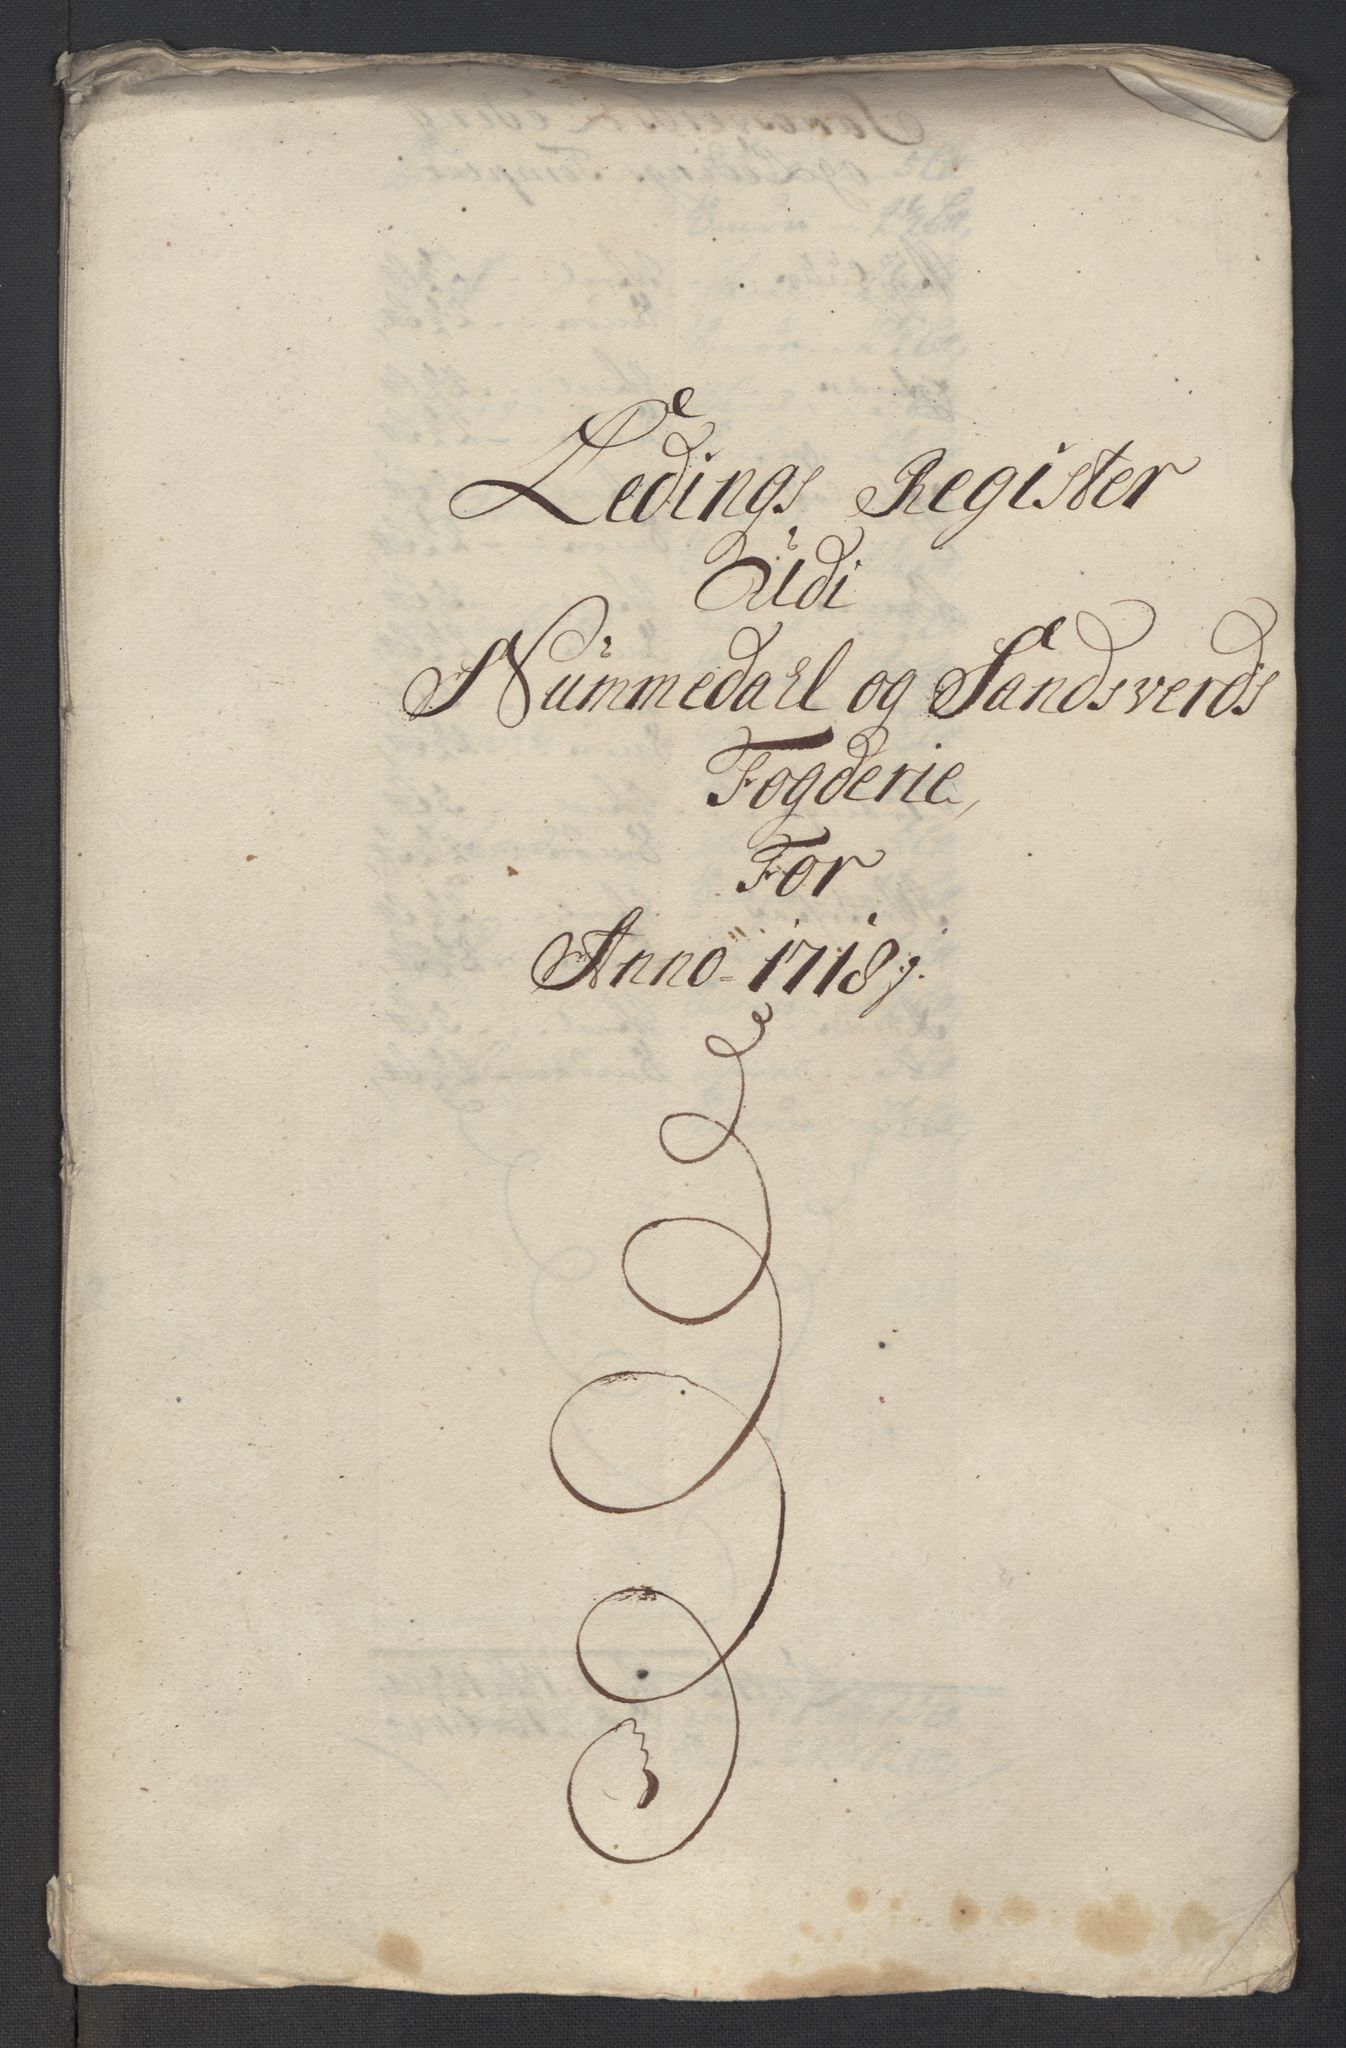 Ledings Register
Udi
Nummedahl og Sandsverds
Fogderie,
For
Anno 1718,.